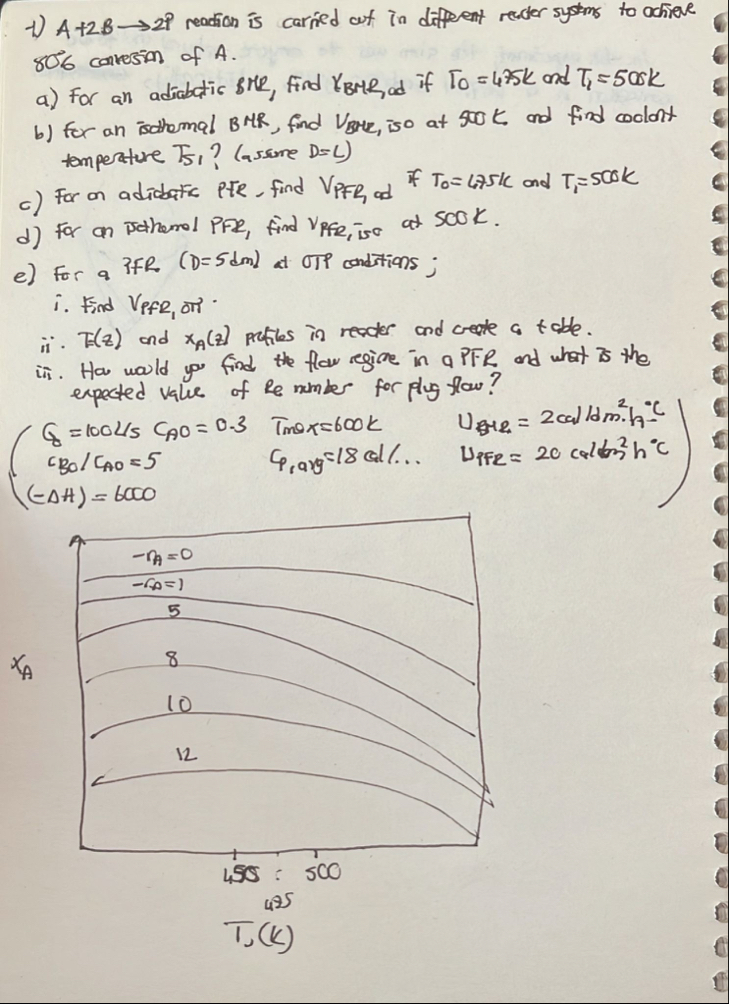 1) A+2B → 2P reaction is carried out in different reactor systems to achieve
80% conversion of A.
a) For an adiabatic BMR, find VBMR,ad if T0 = 475K and T1 = 500K
b) For an isothermal BMR, find VBMR,iso at 500 K and find coolant
temperature TS1? (assume D=L)
c) For an adiabatic PFR, find VPFR,ad if T0=475K and T1=500K
d) For an isothermal PFR, find VPFR,iso at 500K.
e) For a PFR (D=5dm) at OTP conditions;
i. Find VPFR,OTP.
ii. T(z) and xA(z) profiles in reactor and create a table.
iii. How would you find the flow regime in a PFR and what is the
expected value of Re number for plug flow?
=100L/s CA0 = 0.3 Tmax=600K UBMR = 2cal/dm².h°C
CB0/CA0 = 5 Cp,avg=18 cal/... UPFR = 20 cal/dm² h°C
(-ΔH) = 6000
-rA=0
-rA=1
5
8
10
12
xA
450 : 500
475
T,(K)